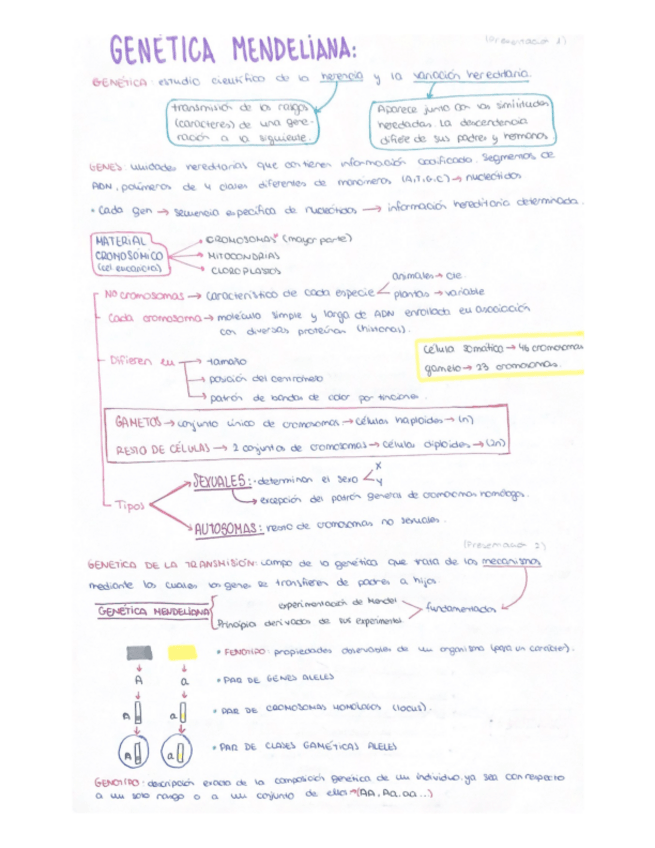 GENÉTICA MENDELIANA:
(Presentación 1)
GENÉTICA: estudio científico de la herencia y la variación hereditaria.
transmisión de los rasgos
(caracteres) de una gene-
ración a la siguiente.
Aparece junto con las similitudes
heredadas. La descendencia
difiere de sus padres y hermanos
GENES: unidades hereditarias que contienen información codificada. Segmentos de
ADN, polímeros de 4 clases diferentes de monómeros (A,T,G,C) → nucleótidos
• Cada gen → secuencia específica de nucleótidos → información hereditaria determinada.
MATERIAL
CROMOSÓMICO
(cel eucariota)
CROMOSOMAS (mayor parte)
MITOCONDRIAS
CLOROPLASTOS
Nº cromosomas → característico de cada especie
animales → cte.
plantas → variable
Cada cromosoma → molécula simple y larga de ADN enrollada en asociación
con diversas proteínas (histonas).
célula somática → 46 cromosomas
gameto → 23 cromosomas.
Difieren en
tamaño
posición del centrómero
patrón de bandas de color por tinciones.
GAMETOS → conjunto único de cromosomas → células haploides → (n)
RESTO DE CÉLULAS → 2 conjuntos de cromosomas → células diploides → (2n)
Tipos
SEXUALES: determinan el sexo
X
Y
excepción del patrón general de cromosomas homólogos.
AUTOSOMAS: resto de cromosomas no sexuales.
(Presentación 2)
GENÉTICA DE LA TRANSMISIÓN: campo de la genética que trata de los mecanismos
mediante los cuales los genes se transfieren de padres a hijos
GENÉTICA MENDELIANA
experimentación de Mendel
Principios derivados de sus experimentos
fundamentados
• FENOTIPO: propiedades observables de un organismo (para un carácter).
A a
• PAR DE GENES ALELES
A a
• PAR DE CROMOSOMAS HOMÓLOGOS (locus).
A a
• PAR DE CLASES GAMÉTICAS ALELES
GENOTIPO: descripción exacta de la composición genética de un individuo, ya sea con respecto
a un solo rasgo o a un conjunto de ellos → (AA, Aa, aa...)